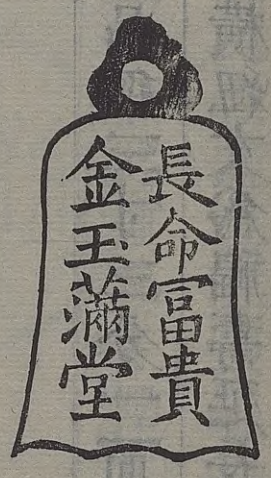 長命富貴
金玉滿堂